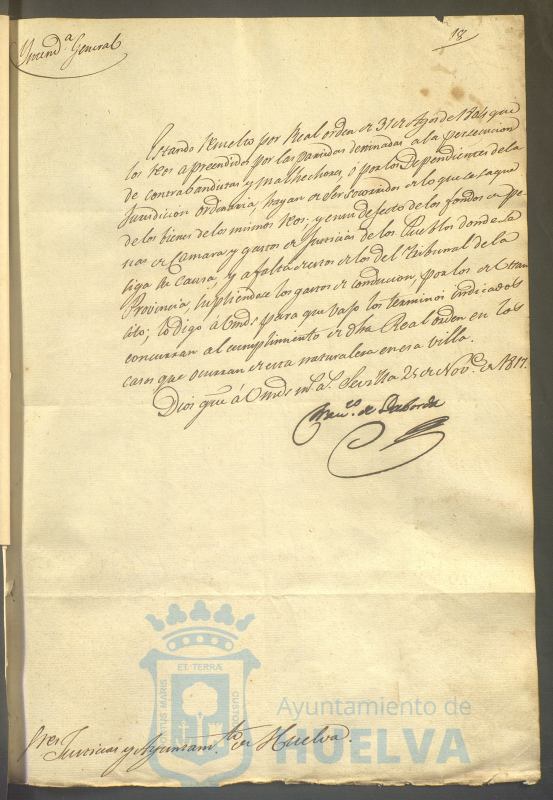 Yntend.ª General
18
Estando resuelto por Real orden de 31 de Agosto de que
los reos aprendidos por las partidas destinadas a la persecucion
de contrabandistas y malhechores, ó por los Dependientes de la
Jurisdicion ordinaria, hayan de ser socorridos de lo que se saque
de los bienes de los mismos reos; y en su defecto de los fondos de pe
nas de Camara y gastos de Justicias de los Pueblos donde se
liga la causa, y a falta de estos de los del Tribunal de la
Provincia, supliendose los gastos de conducion, por los de tran
sito; lo digo á Vmds para que vajo los terminos indicados
concurran al cumplimiento de dha Real orden en los
casos que ocurran de esta naturaleza en esa villa.
Dios gue á Vmds m.s a.s Sevilla 25 de Nov.e de 1817.
Fran.co de Laborda
Sres Justicia y Ayuntam.to de Huelva
ET TERRÆ
PORTUS MARIS
CUSTODIA
Ayuntamiento de
HUELVA